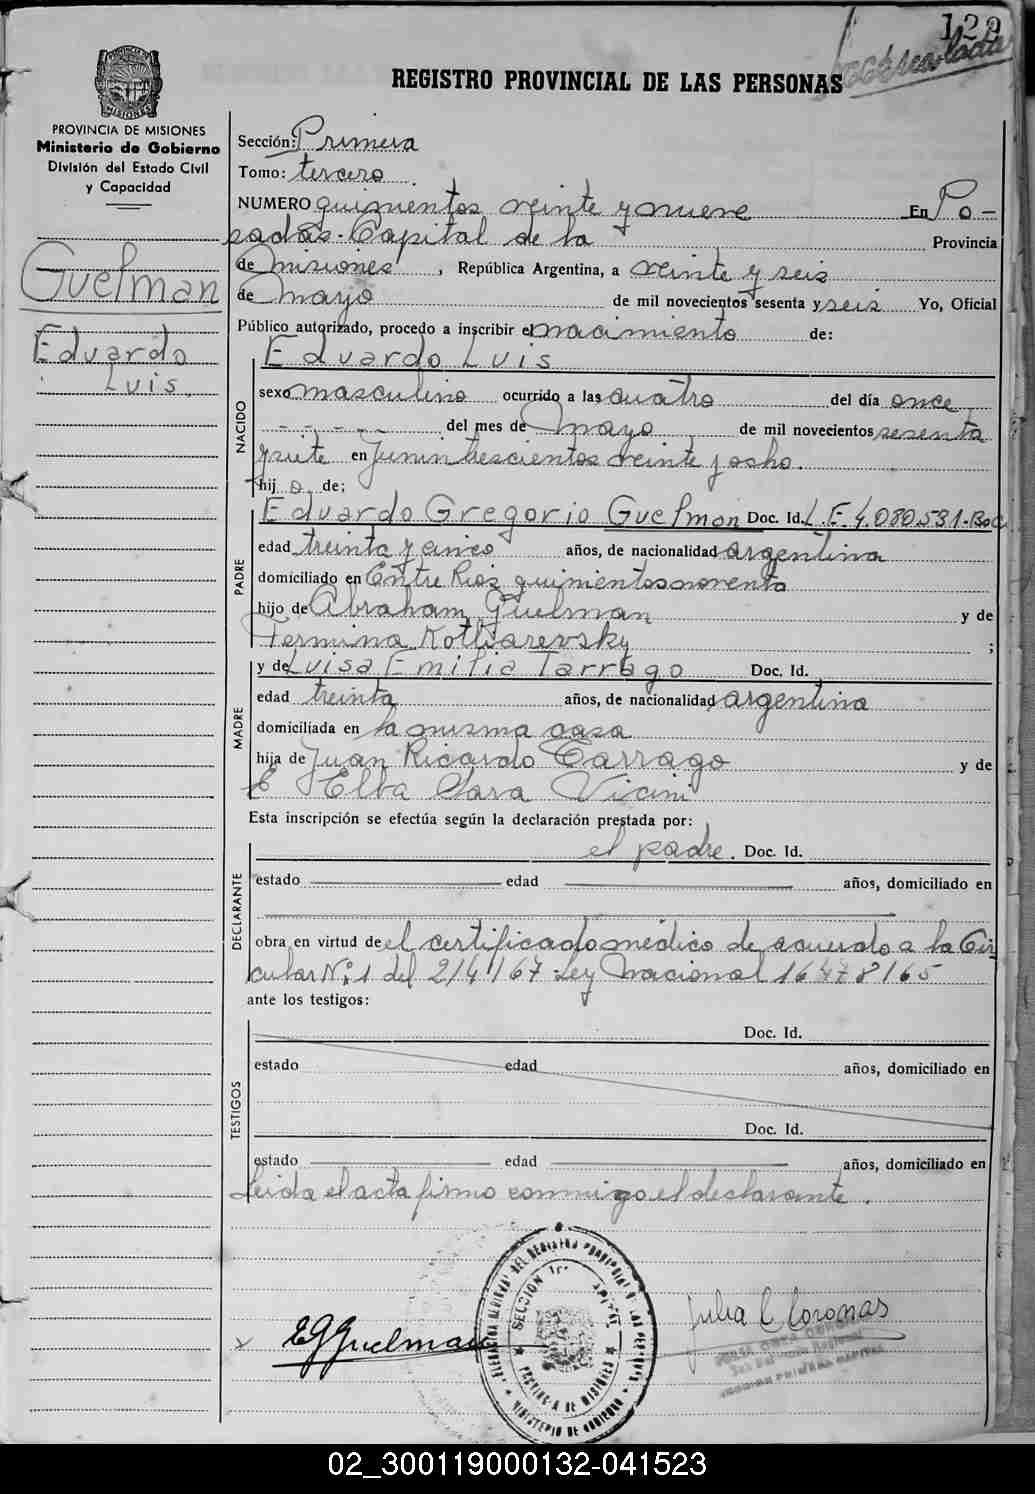 129
REGISTRO PROVINCIAL DE LAS PERSONAS
PROVINCIA DE MISIONES
Ministerio de Gobierno
División del Estado Civil
y Capacidad
Guelman
Eduardo
Luis.
Sección: Primera
Tomo: tercero
NUMERO quinientos veinte y nueve En Po-
sadas. Capital de la Provincia
de misiones, República Argentina, a veinte y seis
de mayo de mil novecientos sesenta y seis Yo, Oficial
Público autorizado, procedo a inscribir el nacimiento de:
Eduardo Luis
NACIDO
sexo masculino ocurrido a las cuatro del día once
- - - - - del mes de mayo de mil novecientos sesenta
y siete en Junin trescientos veinte y ocho.
hij o de;
PADRE
Eduardo Gregorio Guelman Doc. Id. L.E. 4.080.531-
edad treinta y cinco años, de nacionalidad argentina
domiciliado en Entre Rios quinientos noventa
hijo de Abraham Guelman y de
Fermina Kotliarevsky ;
MADRE
y de Luisa Emilia Tarrago Doc. Id.
edad treinta años, de nacionalidad argentina
domiciliada en la misma casa
hija de Juan Ricardo Tarrago y de
E Elba Sara Vicini
Esta inscripción se efectúa según la declaración prestada por:
DECLARANTE
el padre. Doc. Id.
estado edad años, domiciliado en
obra en virtud de el certificado médico de acuerdo a la Cir
cular Nº 1 del 2/4/67 Ley Nacional 16478/65
ante los testigos:
TESTIGOS
Doc. Id.
estado edad años, domiciliado en
Doc. Id.
estado edad años, domiciliado en
Leida el acta firmo conmigo el declarante.
x EGGuelman
Julia C Coronas
SECCION
PROVINCIA DE MISIONES
MINISTERIO DE GOBIERNO
SECCION PRIMERA CAPITAL
02_300119000132-041523